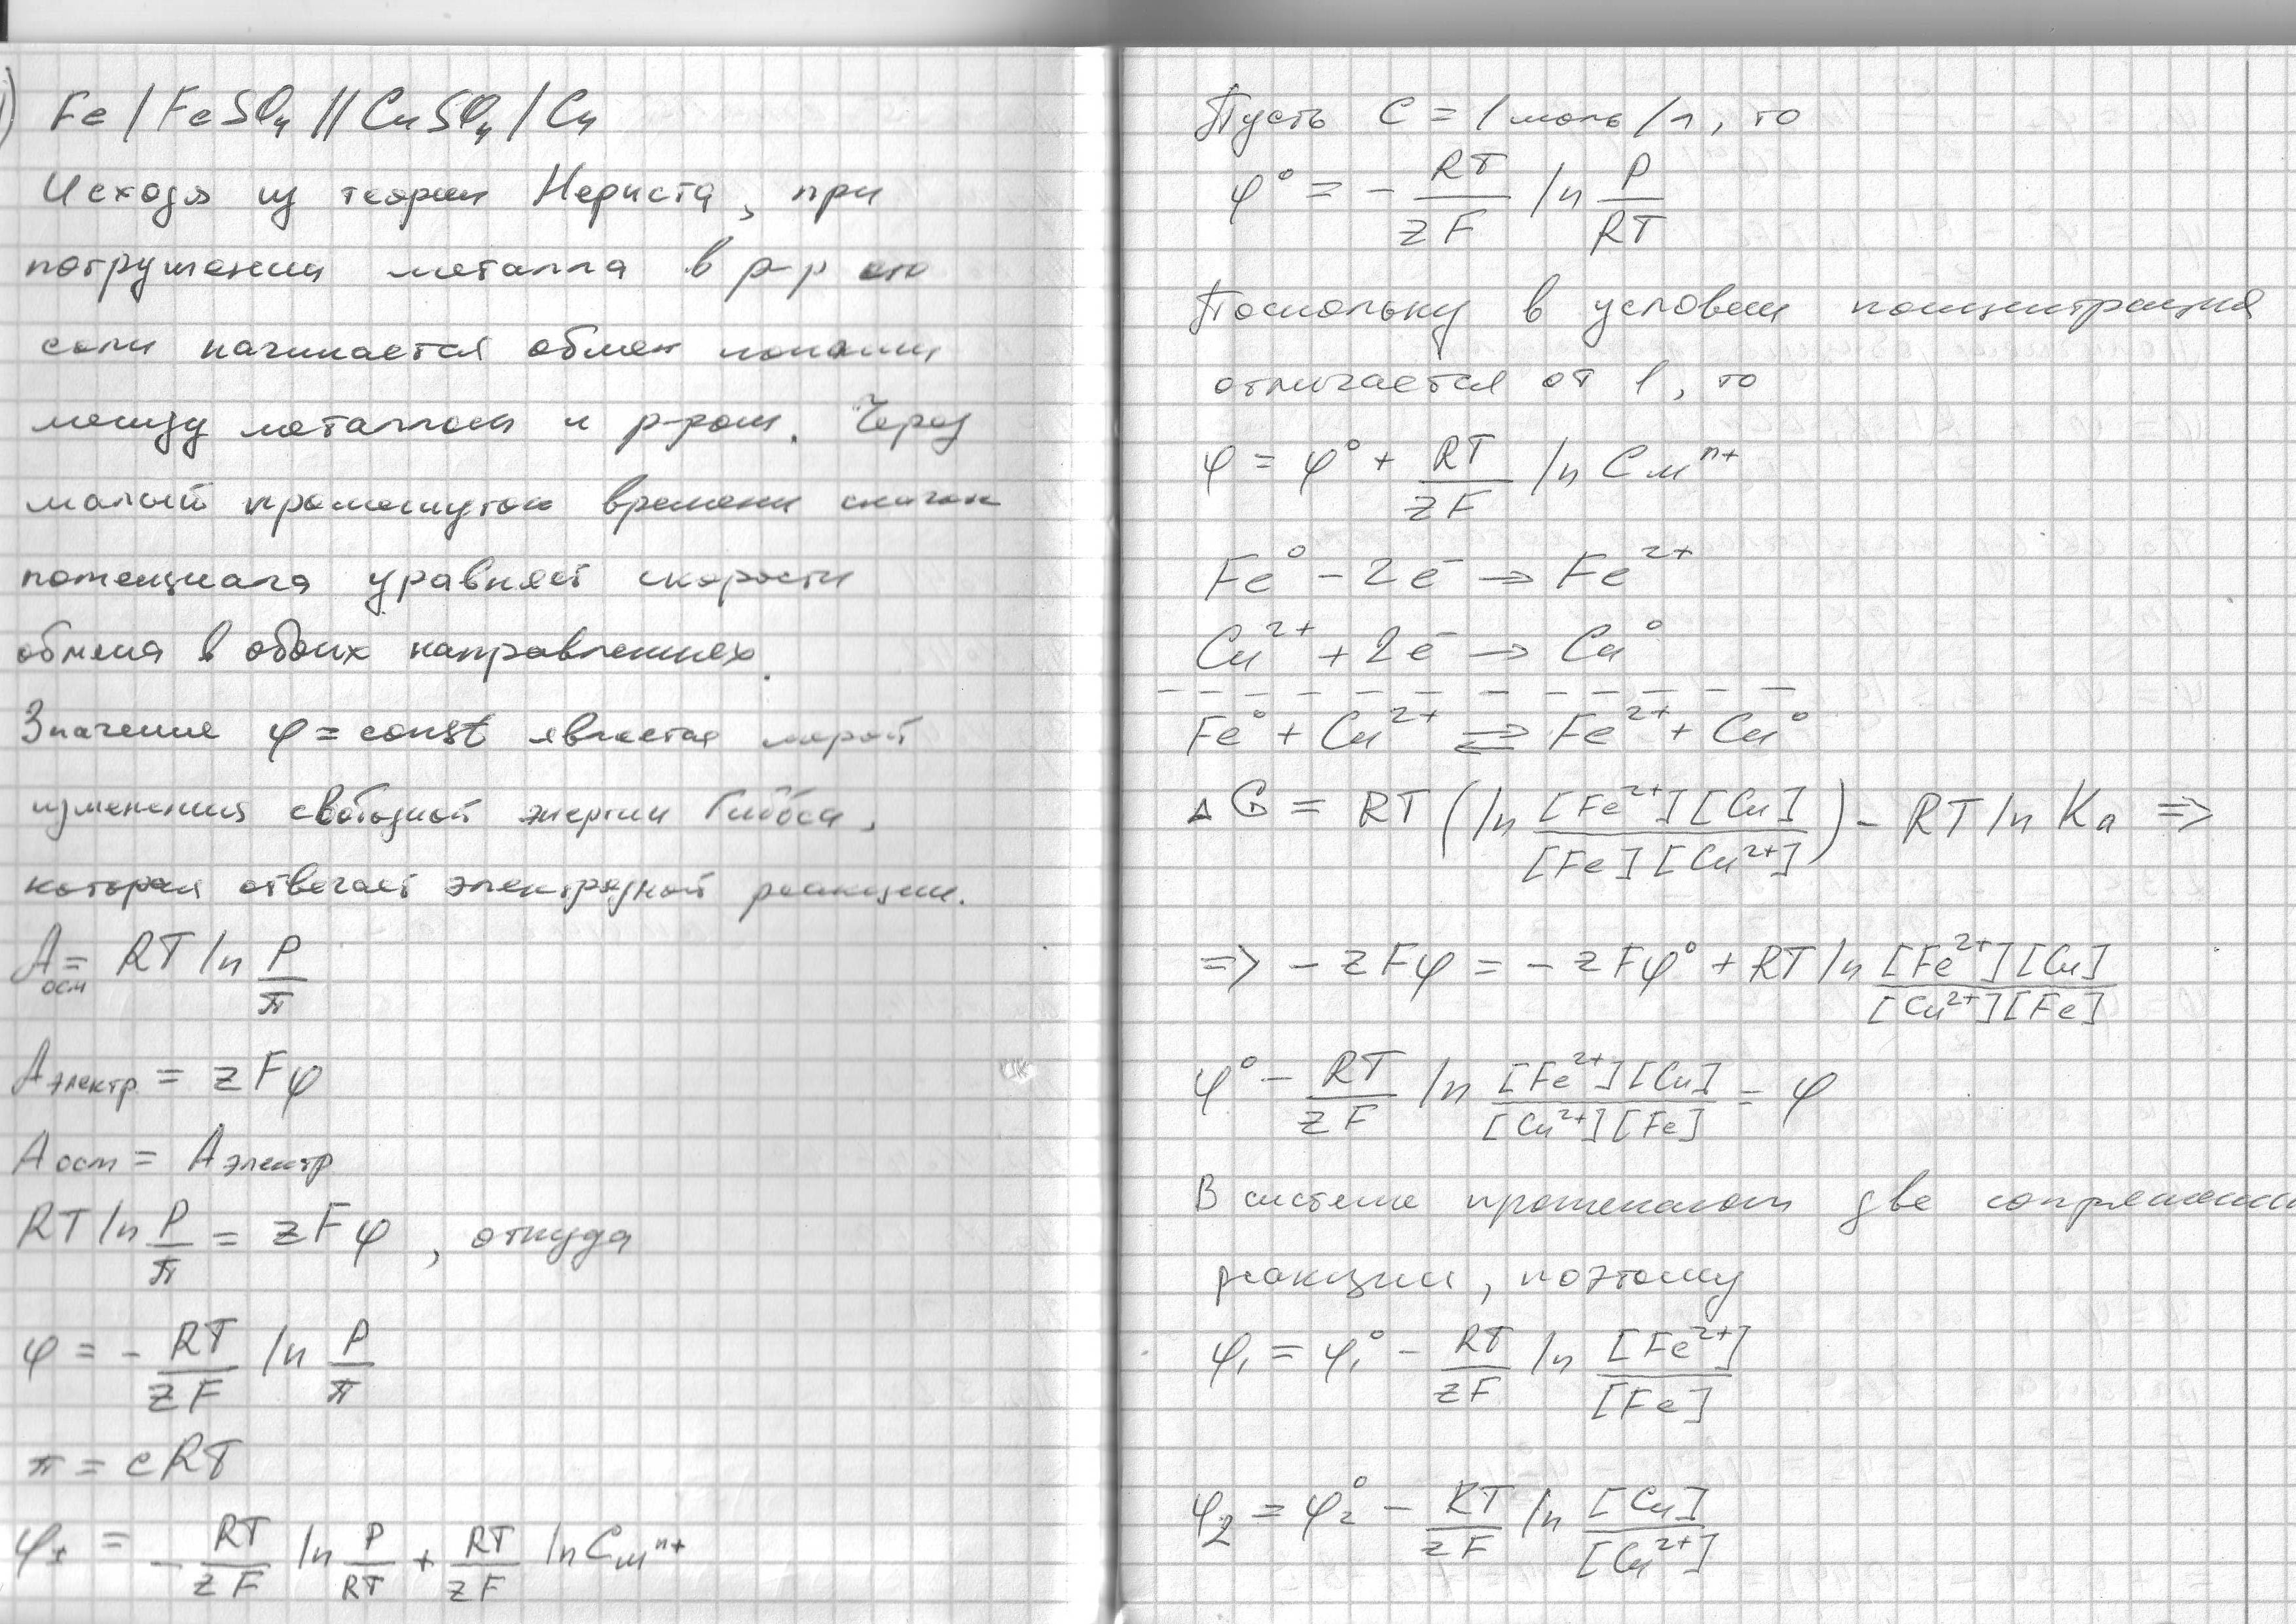 1) Fe | FeSO₄ || CuSO₄ | Cu
Исходя из теории Нернста, при
погружении металла в р-р его
соли начинается обмен ионами
между металлом и р-ром. Через
малый промежуток времени скачок
потенциала уравняет скорости
обмена в обоих направлениях.
Значение φ = const является мерой
изменения свободной энергии Гиббса,
которая отвечает электродной реакции.
A осм = RT ln P/π
A электр = zFφ
A осм = A электр
RT ln P/π = zFφ, откуда
φ = - RT/zF ln P/π
π = cRT
φ± = - RT/zF ln P/RT + RT/zF ln Cмⁿ⁺
Пусть C = 1 моль/л, то
φ° = - RT/zF ln P/RT
Поскольку в условии концентрация
отличается от 1, то
φ = φ° + RT/zF ln Cмⁿ⁺
Fe⁰ - 2ē → Fe²⁺
Cu²⁺ + 2ē → Cu⁰
Fe⁰ + Cu²⁺ ⇄ Fe²⁺ + Cu⁰
ΔG = RT (ln [Fe²⁺][Cu]/[Fe][Cu²⁺]) - RT ln Ka =>
=> - zFφ = - zFφ° + RT ln [Fe²⁺][Cu]/[Cu²⁺][Fe]
φ° - RT/zF ln [Fe²⁺][Cu]/[Cu²⁺][Fe] = φ
В системе протекают две
реакции, поэтому
φ₁ = φ₁° - RT/zF ln [Fe²⁺]/[Fe]
φ₂ = φ₂° - RT/zF ln [Cu]/[Cu²⁺]